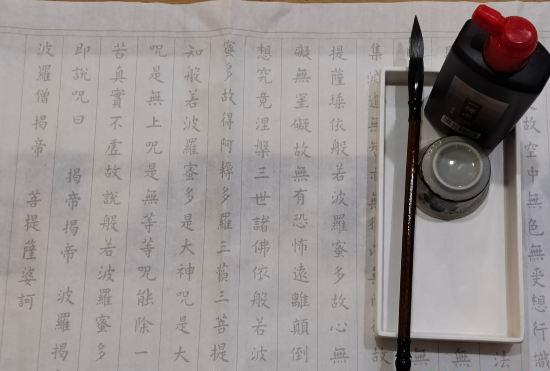 故空中無色無受想行識
法
無
無
集
故
提薩埵依般若波羅蜜多故心無
礙無罣礙故無有恐怖遠離顛倒
想究竟涅槃三世諸佛依般若波
蜜多故得阿耨多羅三藐三菩提
知般若波羅蜜多是大神咒是大
咒是無上咒是無等等咒能除一
苦真實不虛故說般若波羅蜜多
即說咒曰 揭帝揭帝 波羅揭
波羅僧揭帝 菩提薩婆訶